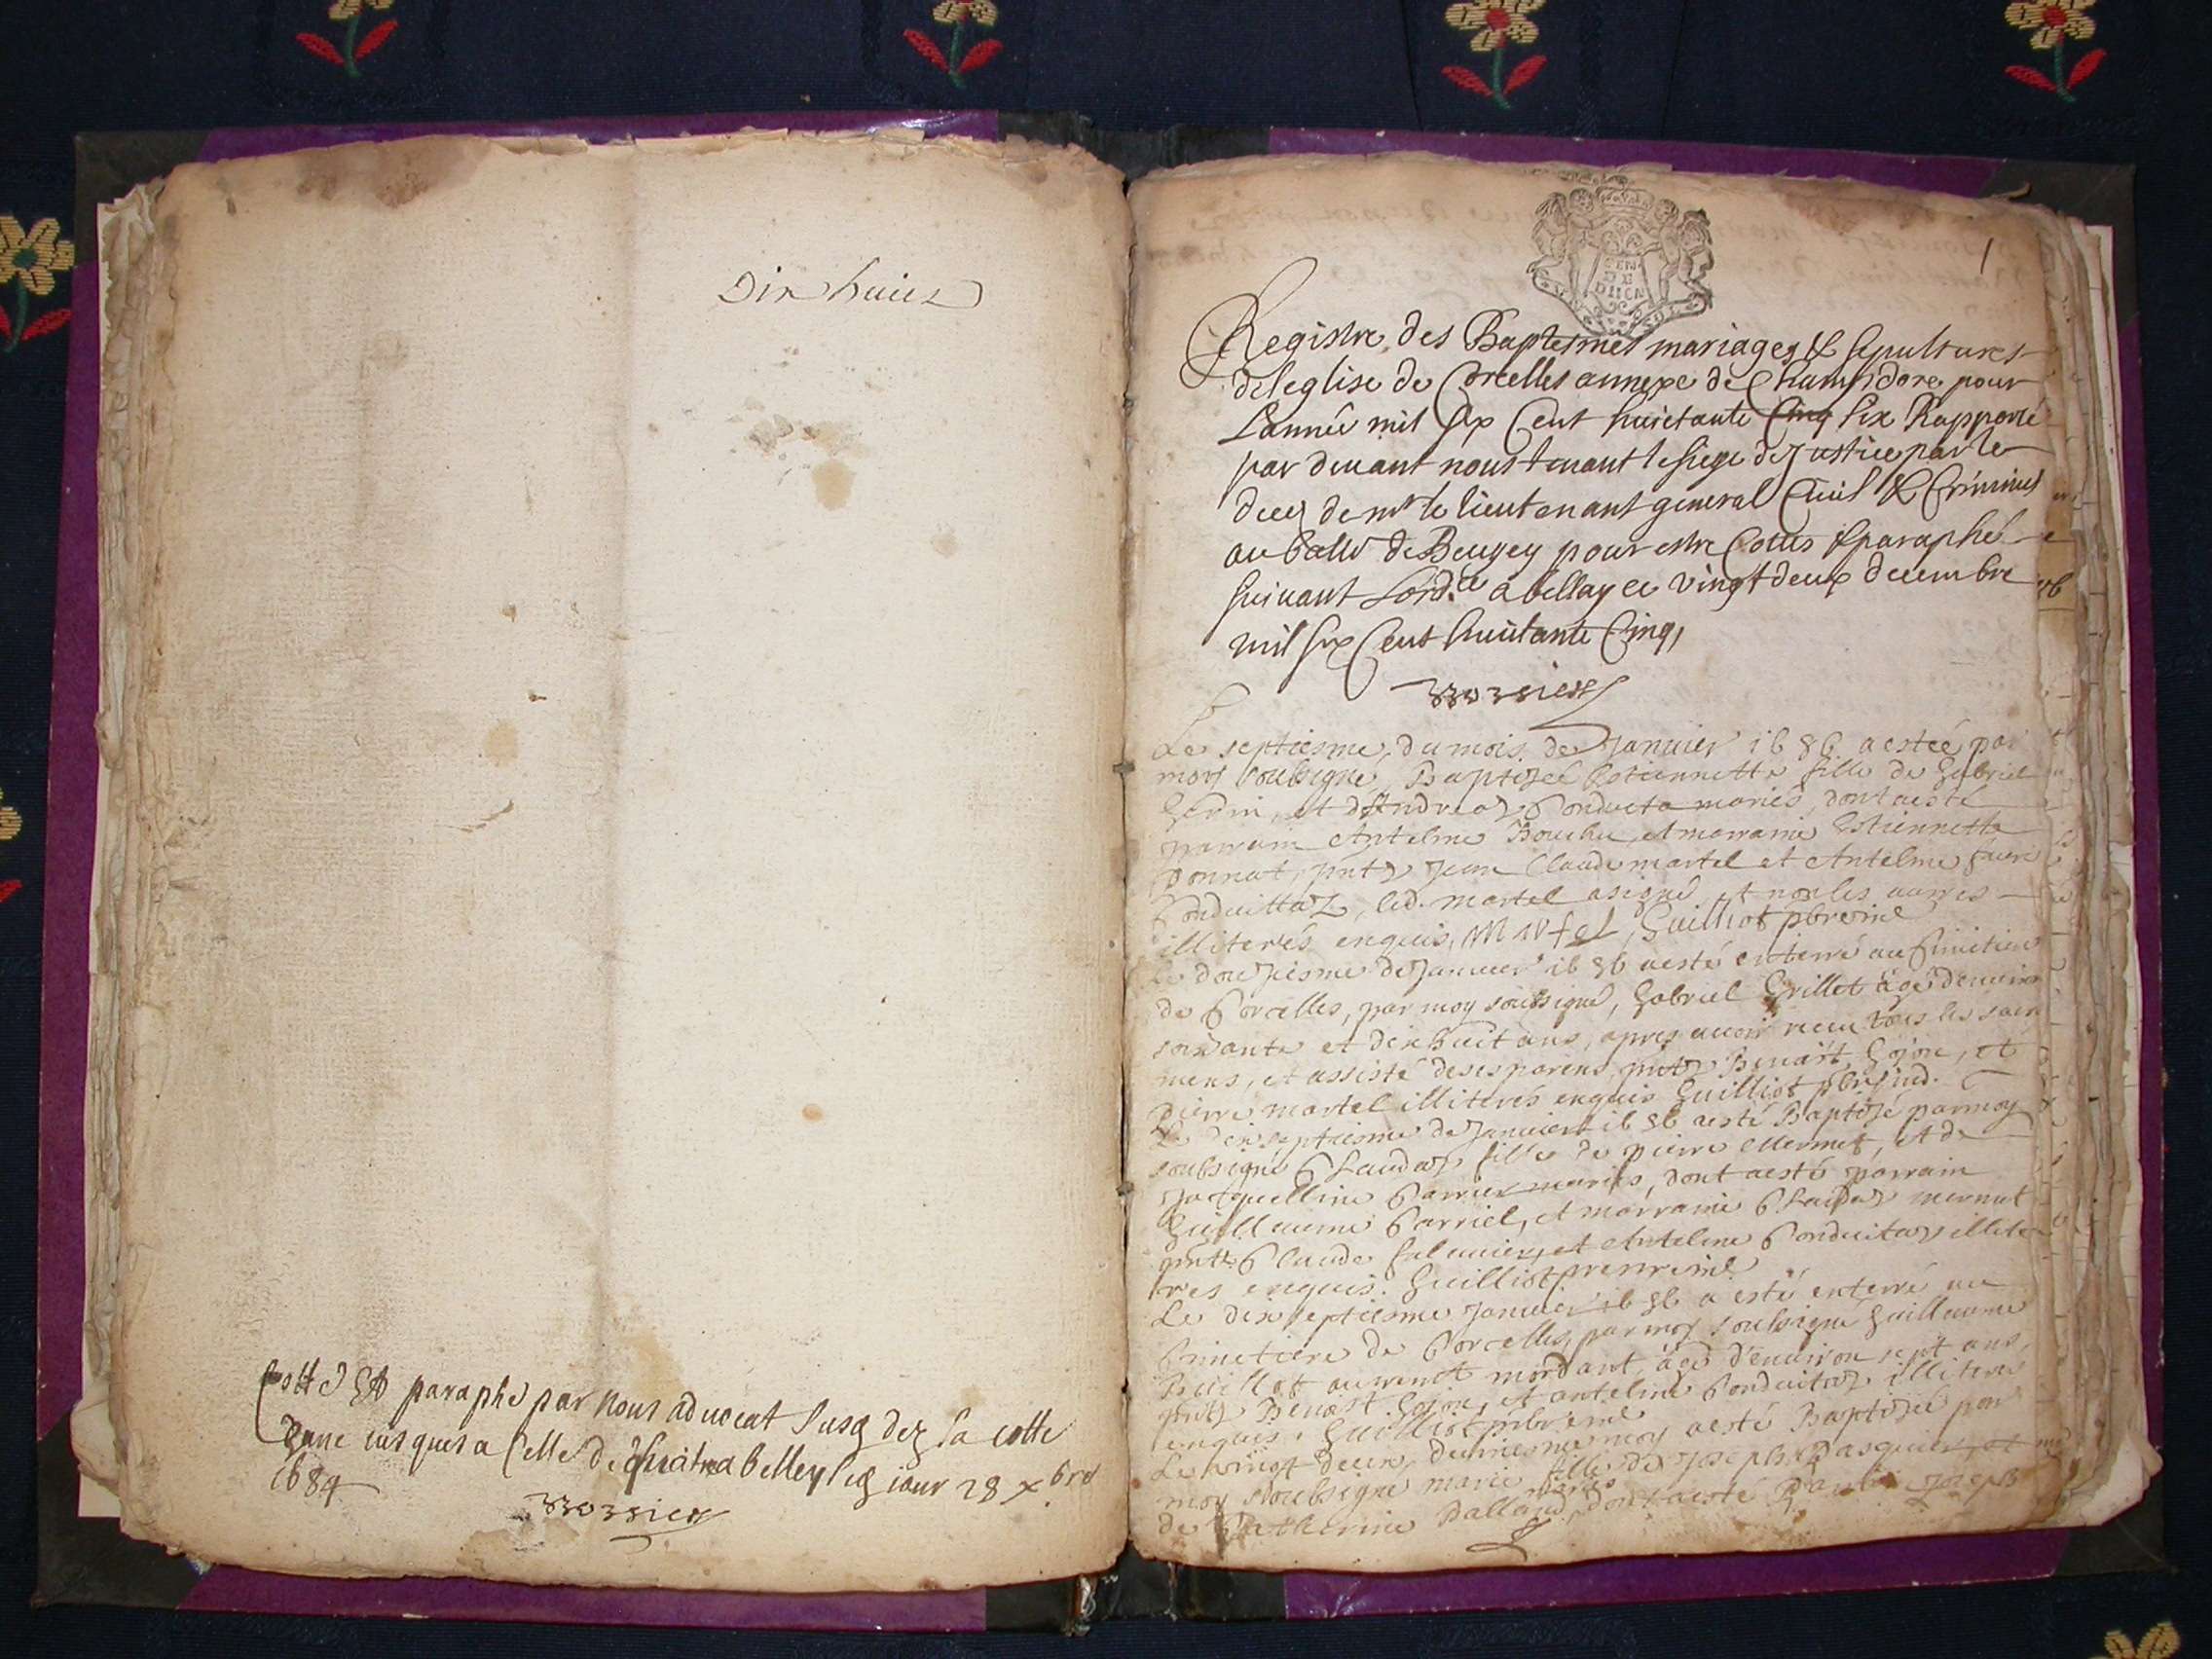 Dix huict
Cotté Et paraphé par nous advocat susd dez la cotte
dune jusques a Celle de quatre a belley led jour 28 xbre
1684
1
GEN
DE
DIION
Registre des Baptesmes mariages & sepultures
de leglise de Corcelles annexe de Champdore pour
Lannée mil six Cent huictante Cinq six Rapporté
par devant nous tenant le siege de Justice par le
deces de mr le lieutenant general Civil & Criminel
au balle de Beugey pour estre Cottés & paraphé
suivant Lord.ce a bellay ce vingt deux decembre
mil six Cent huictante Cinq,
Le septiesme, du mois de Janvier 1686 a estée par
moy soubsigné, Baptizée Estiennette fille de Gabriel
et d'Andrea Conducta mariés, dont a esté
parrain Antelme Bouchu, et marraine Estiennette
Ponnat, pnts Jean Claude martel et Antelme favre
Conduittaz, led. martel a signé, et non les autres
illiterés enquis, Martel, Guilliot pbre
Le douziesme de Janvier 1686 a esté enterré au Cimetiere
de Corcelles, par moy soubsigné, Gabriel Grillet agé denviron
soixante et dix huit ans, apres avoir receu tous les sacre
mens, et assisté de ses parens, pnts Benoist Gojon, et
pierre martel illiterés enquis Guilliot pbre
Le dix septiesme de Janvier 1686 a esté Baptizé par moy
soubsigné Claudaz fille de pierre Mermet, et de
Jacquelline Carrier mariés, dont a esté parrain
Guillaume Carriel, et marraine Claudaz mermet
pnts Claude et Antelme Conduitaz illite
res enquis. Guilliot
Le dix septiesme Janvier 1686 a esté enterré au
Cimetiere de Corcelles, par moy soubsigné Guillaume
Guillot mordant, âgé d'environ sept ans,
pnts Benoist Gojon, et antelme Conduitaz illiteres
enquis. Guilliot pbre
Le vingt deux, du mesme moy a esté Baptizée par
moy soubsigné marie fille de Joseph Pasquier, et
mariés
de Catherine Balland, dont a esté Joseph